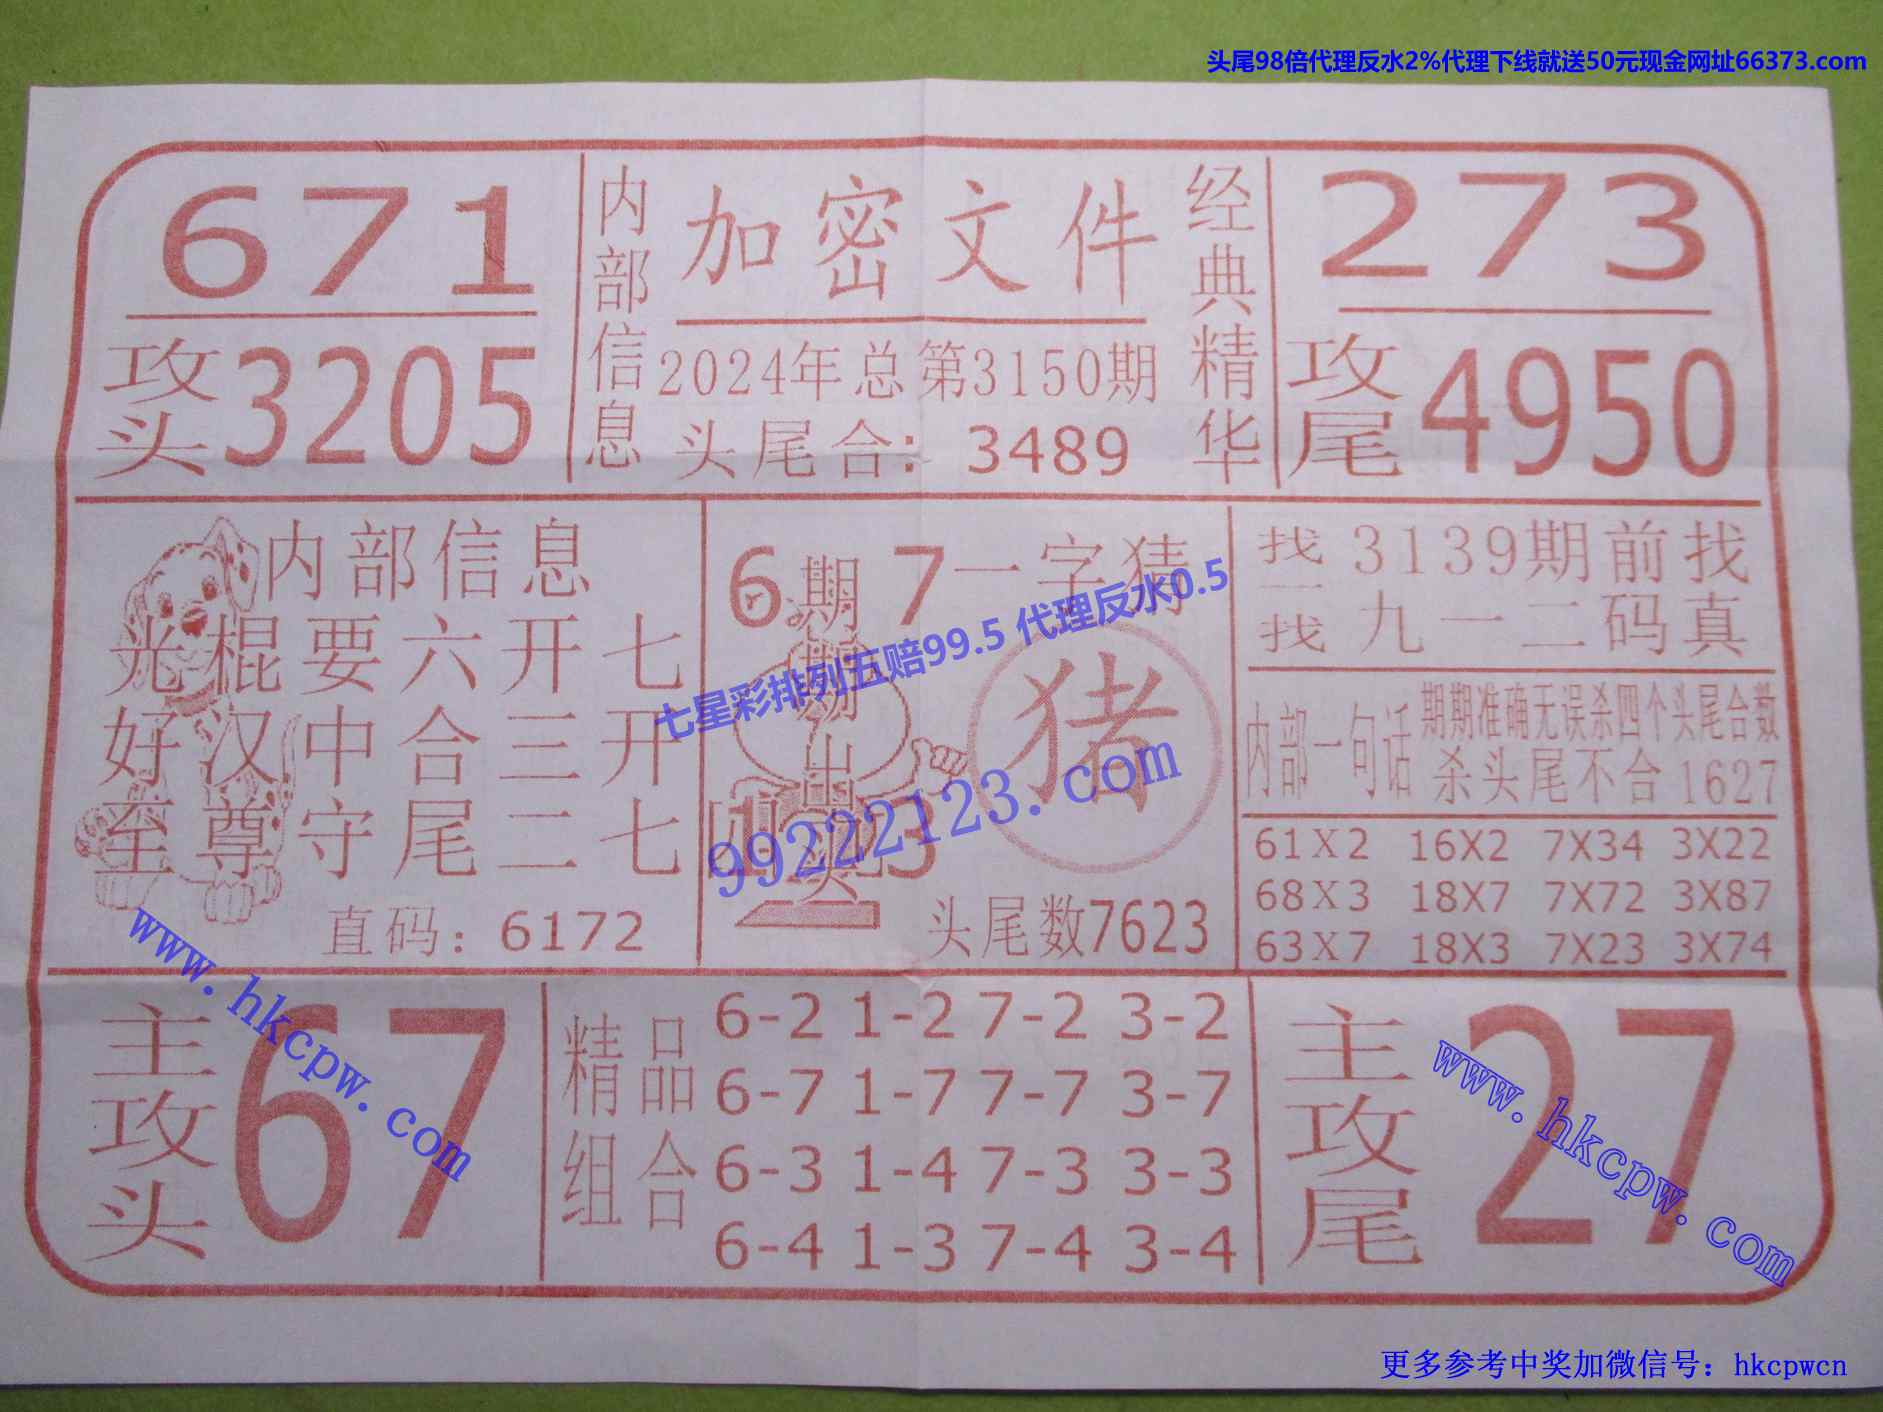 头尾98倍代理反水2%代理下线就送50元现金网址66373.com
671
攻头 3205
内部信息
加密文件
2024年总第3150期
头尾合：3489
经典精华
273
攻尾 4950
内部信息
光棍要六开七
好汉中合三开
至尊守尾二七
直码：6172
6 7
期期出头
一字猜
猪
头尾数7623
找一找
3139期前找
九一二码真
内部一句话
期期准确无误杀四个头尾合数
杀头尾不合1627
61X2 16X2 7X34 3X22
68X3 18X7 7X72 3X87
63X7 18X3 7X23 3X74
七星彩排列五赔99.5 代理反水0.5
99222123.com
主攻头 67
精品组合
6-2 1-2 7-2 3-2
6-7 1-7 7-7 3-7
6-3 1-4 7-3 3-3
6-4 1-3 7-4 3-4
主攻尾 27
www.hkcpw.com
www.hkcpw.com
更多参考中奖加微信号：hkcpwcn